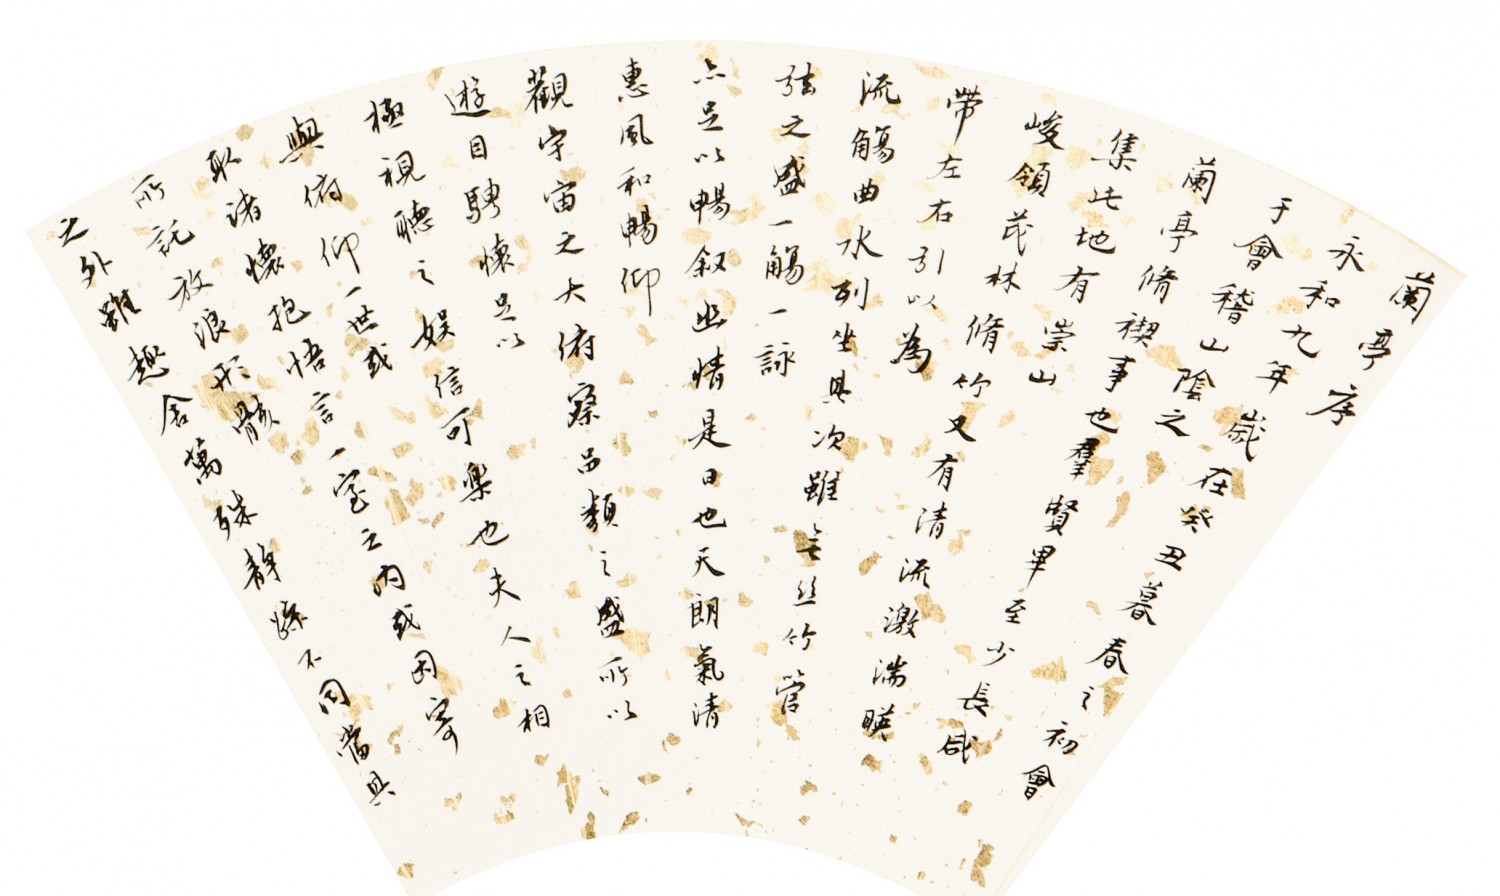 蘭亭序
永和九年歲在癸丑暮春之初會
于會稽山陰之
蘭亭脩禊事也羣賢畢至少長咸
集此地有崇山
峻領茂林脩竹又有清流激湍暎
帶左右引以為
流觴曲水列坐其次雖無絲竹管
弦之盛一觴一詠
亦足以暢叙幽情是日也天朗氣清
惠風和暢仰
觀宇宙之大俯察品類之盛所以
遊目騁懷足以
極視聽之娛信可樂也夫人之相
與俯仰一世或
取諸懷抱悟言一室之內或因寄
所託放浪形骸
之外雖趣舍萬殊靜躁不同當其